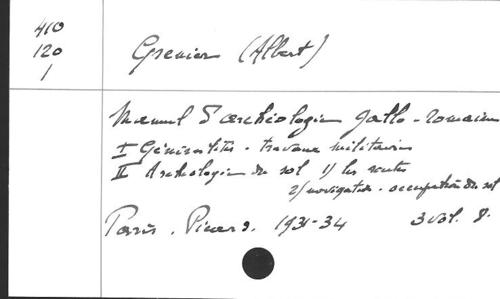 410
120
1
Grenier (Albert)
Manuel d'archéologie gallo-romaine
I Généralités - travaux militaires
II Archéologie du sol 1/ les routes
2/ navigation - occupation du sol
Paris. Picard. 1931-34 3 vol. 8°